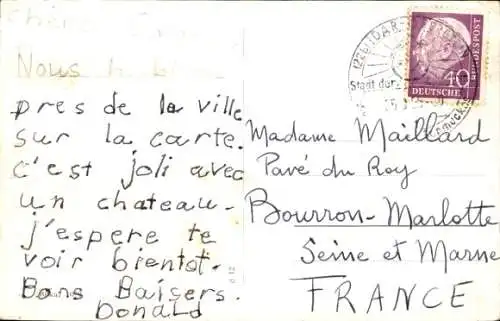 Chère
Nous
pres de la ville
sur la carte.
c'est joli avec
un chateau-
j'espere te
voir bientot-
Bons Baisers.
Donald
Stadt der
40
DEUTSCHE
BUNDESPOST
Madame Maillard
Pavé du Roy
Bourron-Marlotte
Seine et Marne
FRANCE